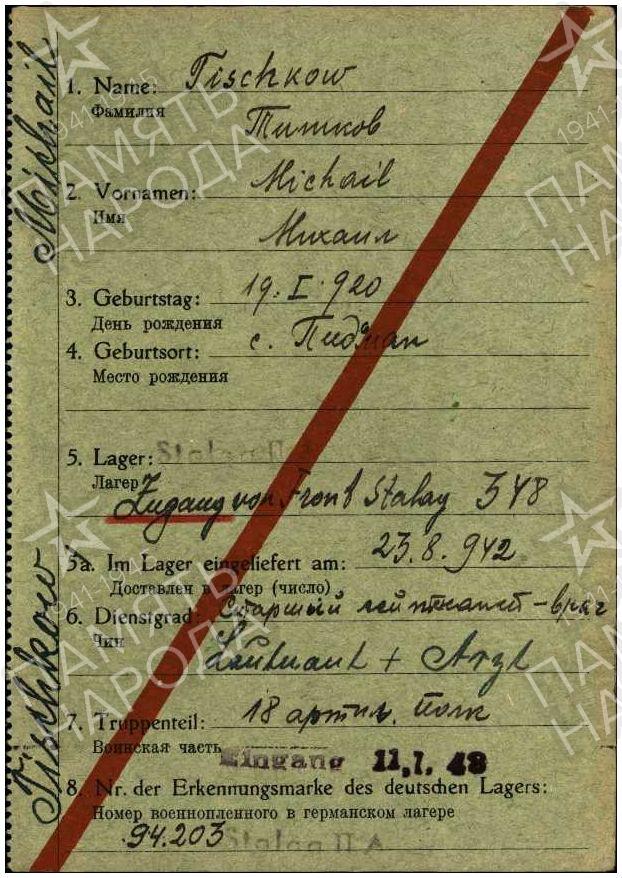 Tischkow Michail
1. Name: Tischkow
Фамилия
Тишков
2. Vornamen: Michail
Имя
Михаил
3. Geburtstag: 19. I. 920
День рождения
4. Geburtsort: с.
Место рождения
5. Lager: Stalag II A
Лагер
Zugang von Front Stalag 348
5a. Im Lager eingeliefert am: 23.8.942
Доставлен в лагер (число)
6. Dienstgrad: Старший лейтенант-врач
Чин
Leutnant + Arzt
7. Truppenteil: 18 артил. полк
Воинская часть
Eingang 11.1.43
8. Nr. der Erkennungsmarke des deutschen Lagers:
Номер военнопленного в германском лагере
94.203
Stalag II A
ПАМЯТЬ
НАРОДА
1941-1945